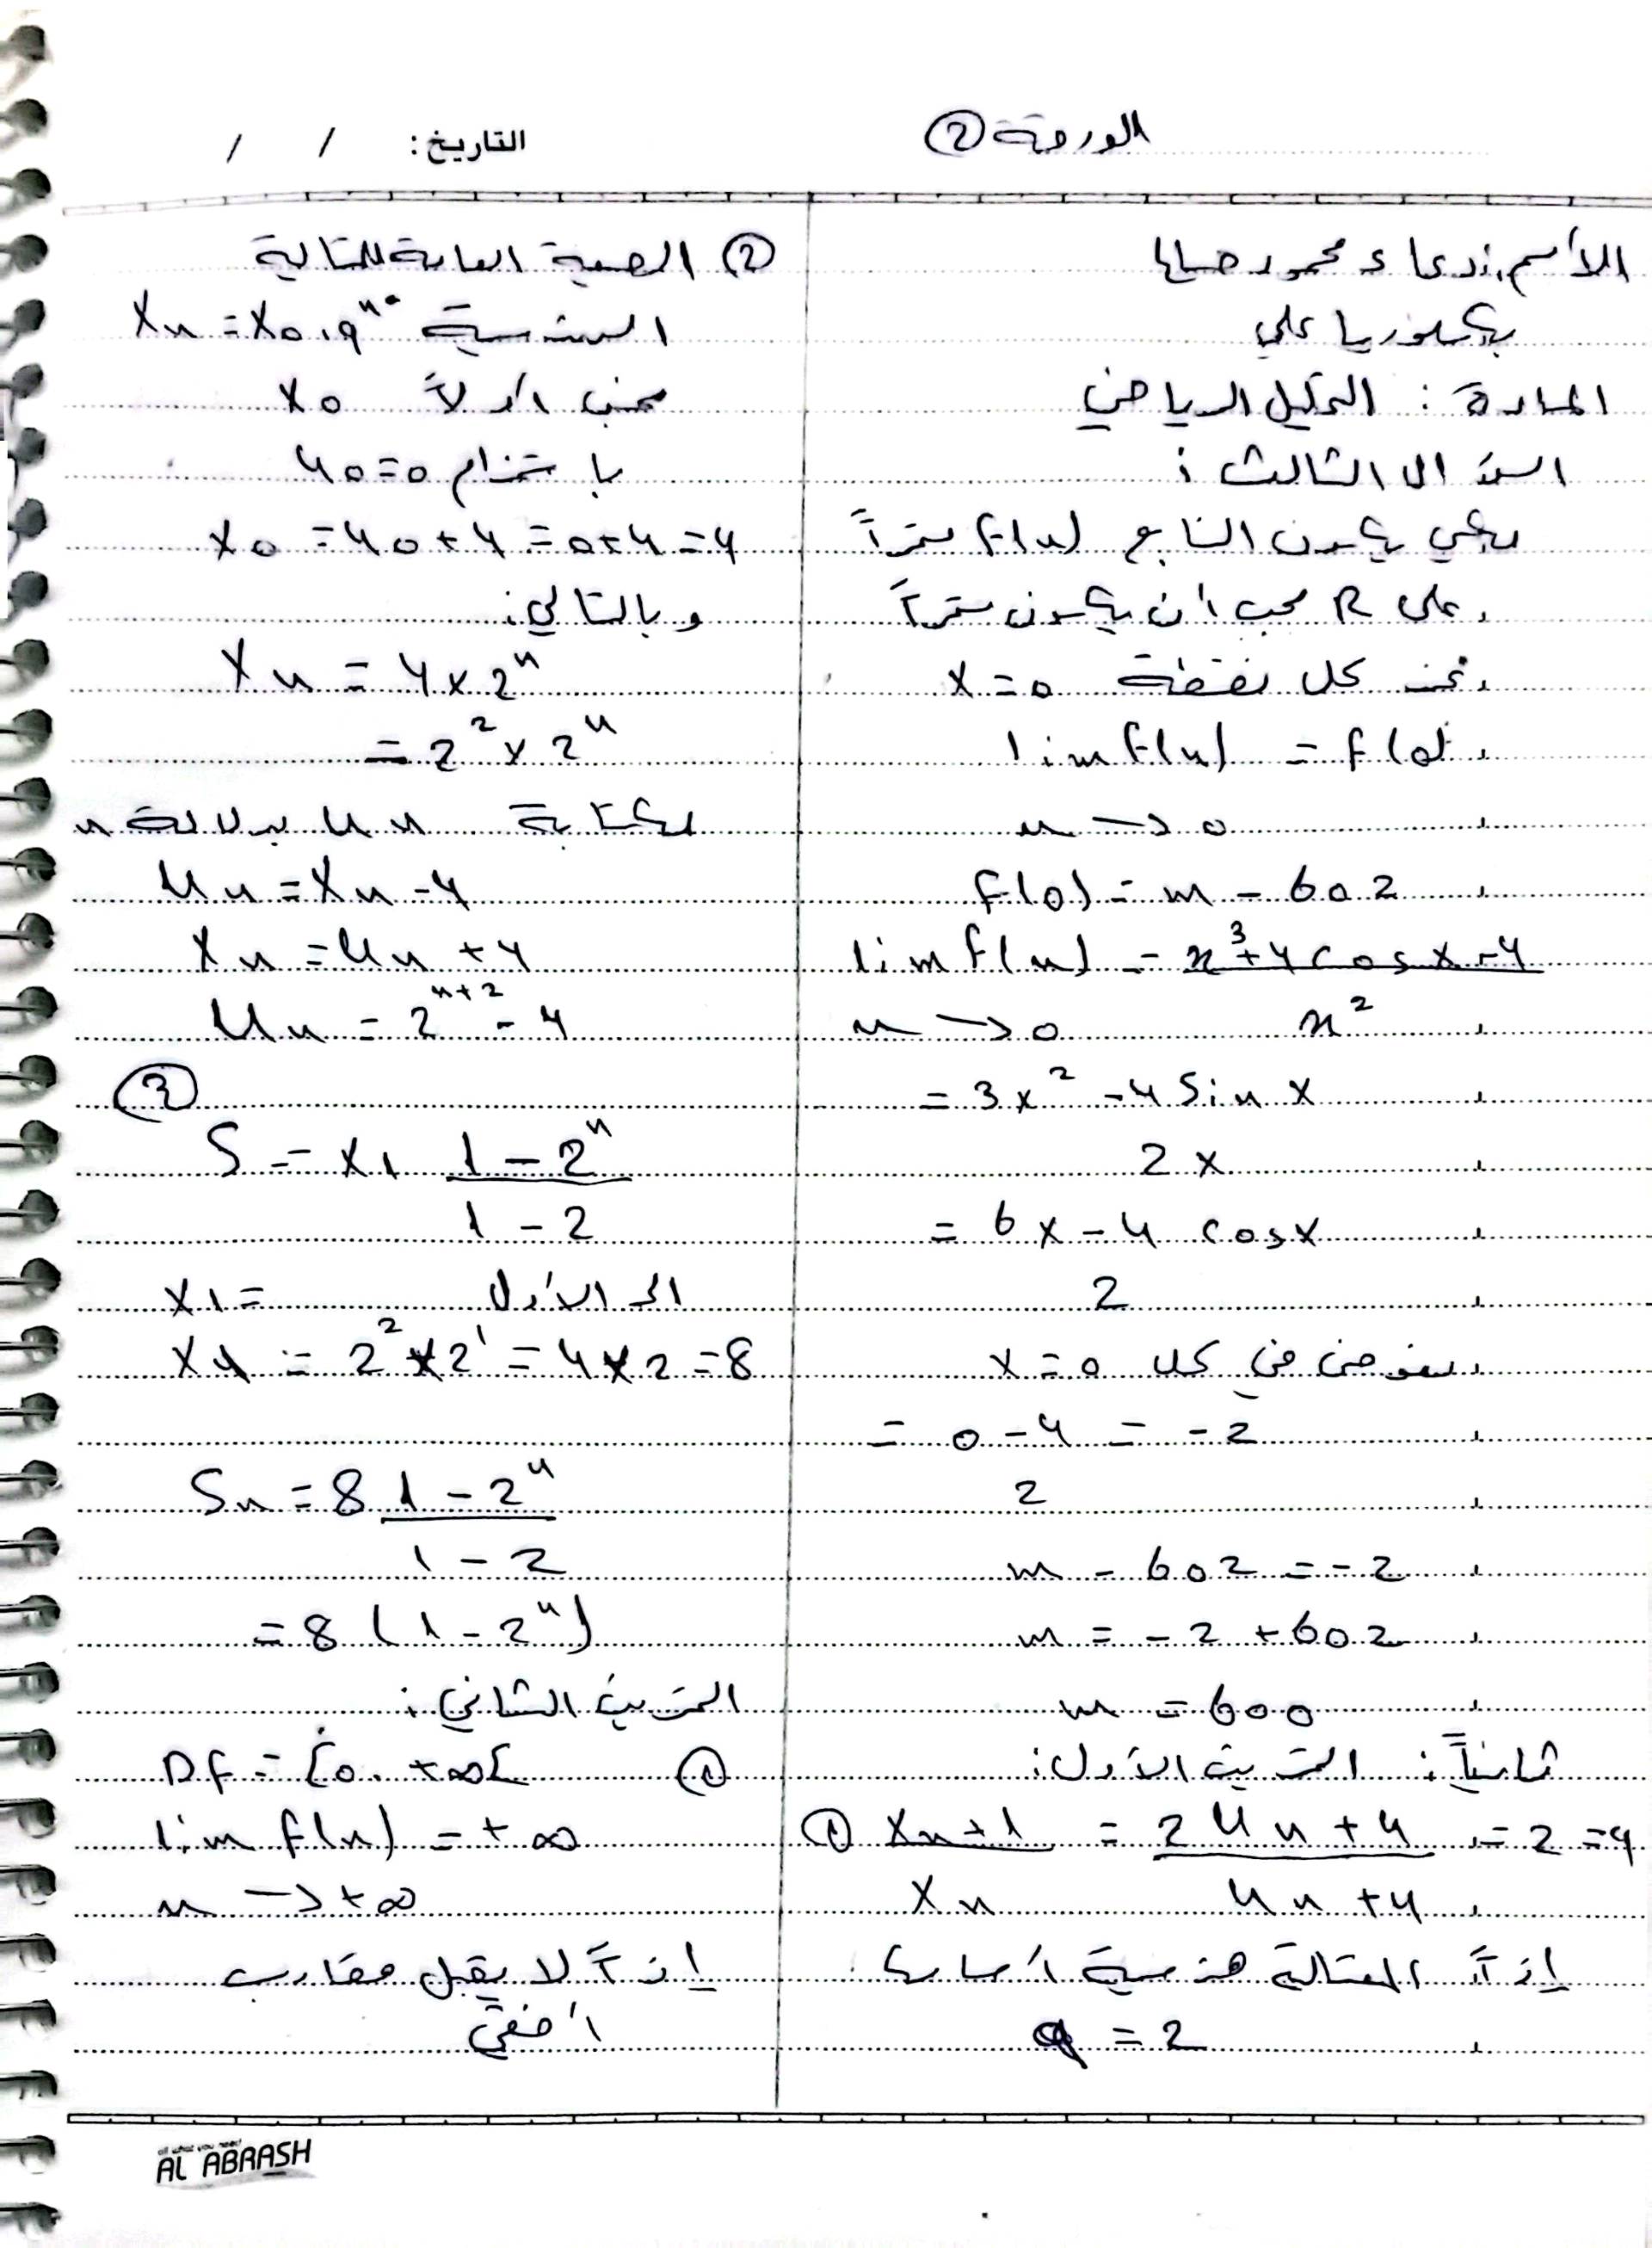 الورقة ②
التاريخ: / /
الأسم: دعاء محمود صيايا
بكلوريا علمي
المادة: التحليل الرياضي
السؤال الثالث:
لكي يكون التابع f(x) مستمراً
على R يجب أن يكون مستمراً
عند كل نقطة x = 0
lim f(x) = f(0)
x → 0
f(0) = m - 602
lim f(x) = x³ + 4 cos x - 4
x → 0 x²
= 3x² - 4 Sin x
2x
= 6x - 4 cos x
2
نعوض في كل x = 0
= 0 - 4 = -2
2
m - 602 = -2
m = -2 + 602
m = 600
ثانياً: التمرين الأول:
① Xn+1 = 2Un + 4 = 2 = q
Xn Un + 4
إذاً المتتالية هندسية أساسها
q = 2
② الصيغة العامة للمتتالية
الهندسية Xn = X0 . qⁿ
نحسب أولاً X0
باستخدام U0 = 0
X0 = U0 + 4 = 0 + 4 = 4
وبالتالي:
Xn = 4 × 2ⁿ
= 2² × 2ⁿ
لكتابة Un بدلالة n
Un = Xn - 4
Xn = Un + 4
Un = 2ⁿ⁺² - 4
③
S = X1 1 - 2ⁿ
1 - 2
الحد الأول X1 =
X1 = 2² × 2¹ = 4 × 2 = 8
Sn = 8 1 - 2ⁿ
1 - 2
= 8 (1 - 2ⁿ)
التمرين الثاني:
① Df = [0. +∞[
lim f(x) = +∞
x → +∞
إذاً لا يقبل مقارب
أفقي
all what you need!
AL ABRASH